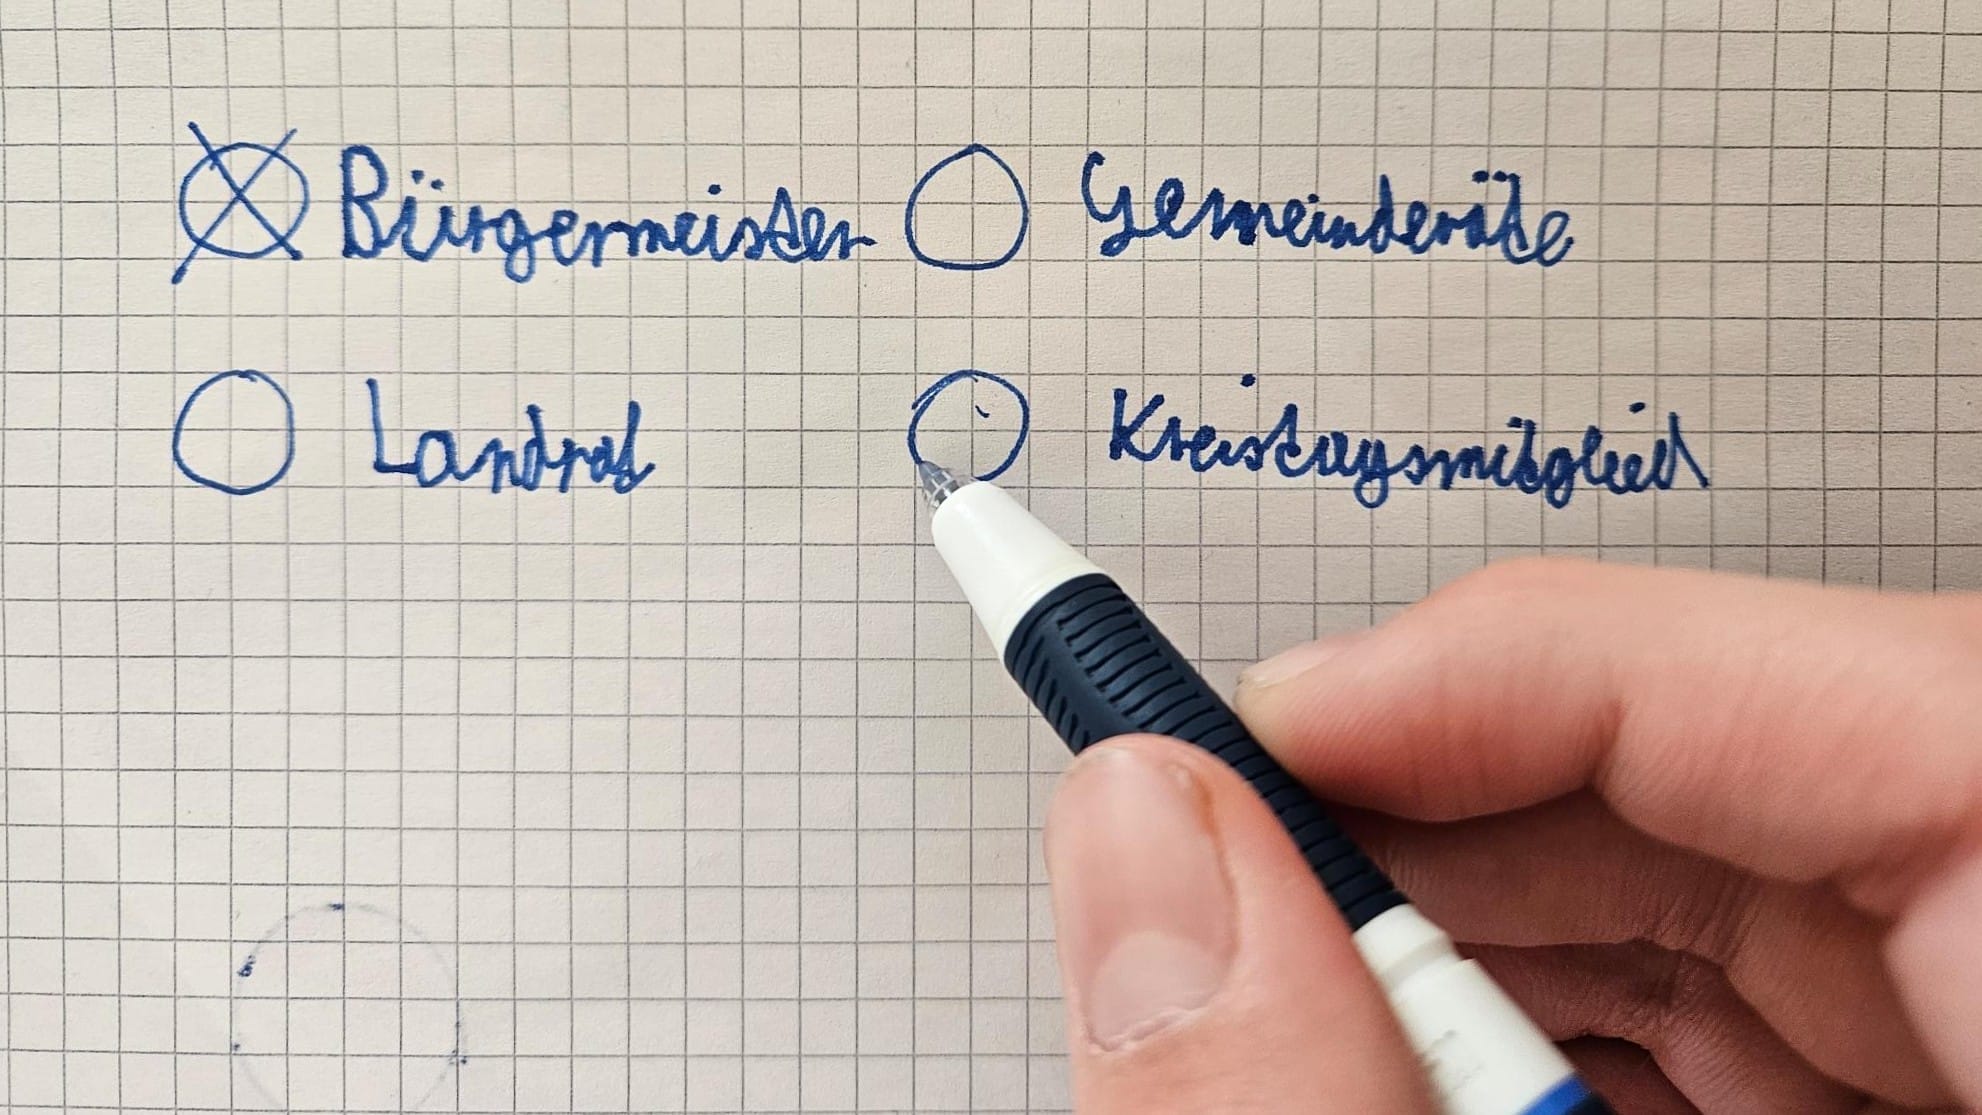 Bürgermeister Gemeinderäte
Landrat Kreistagsmitglied